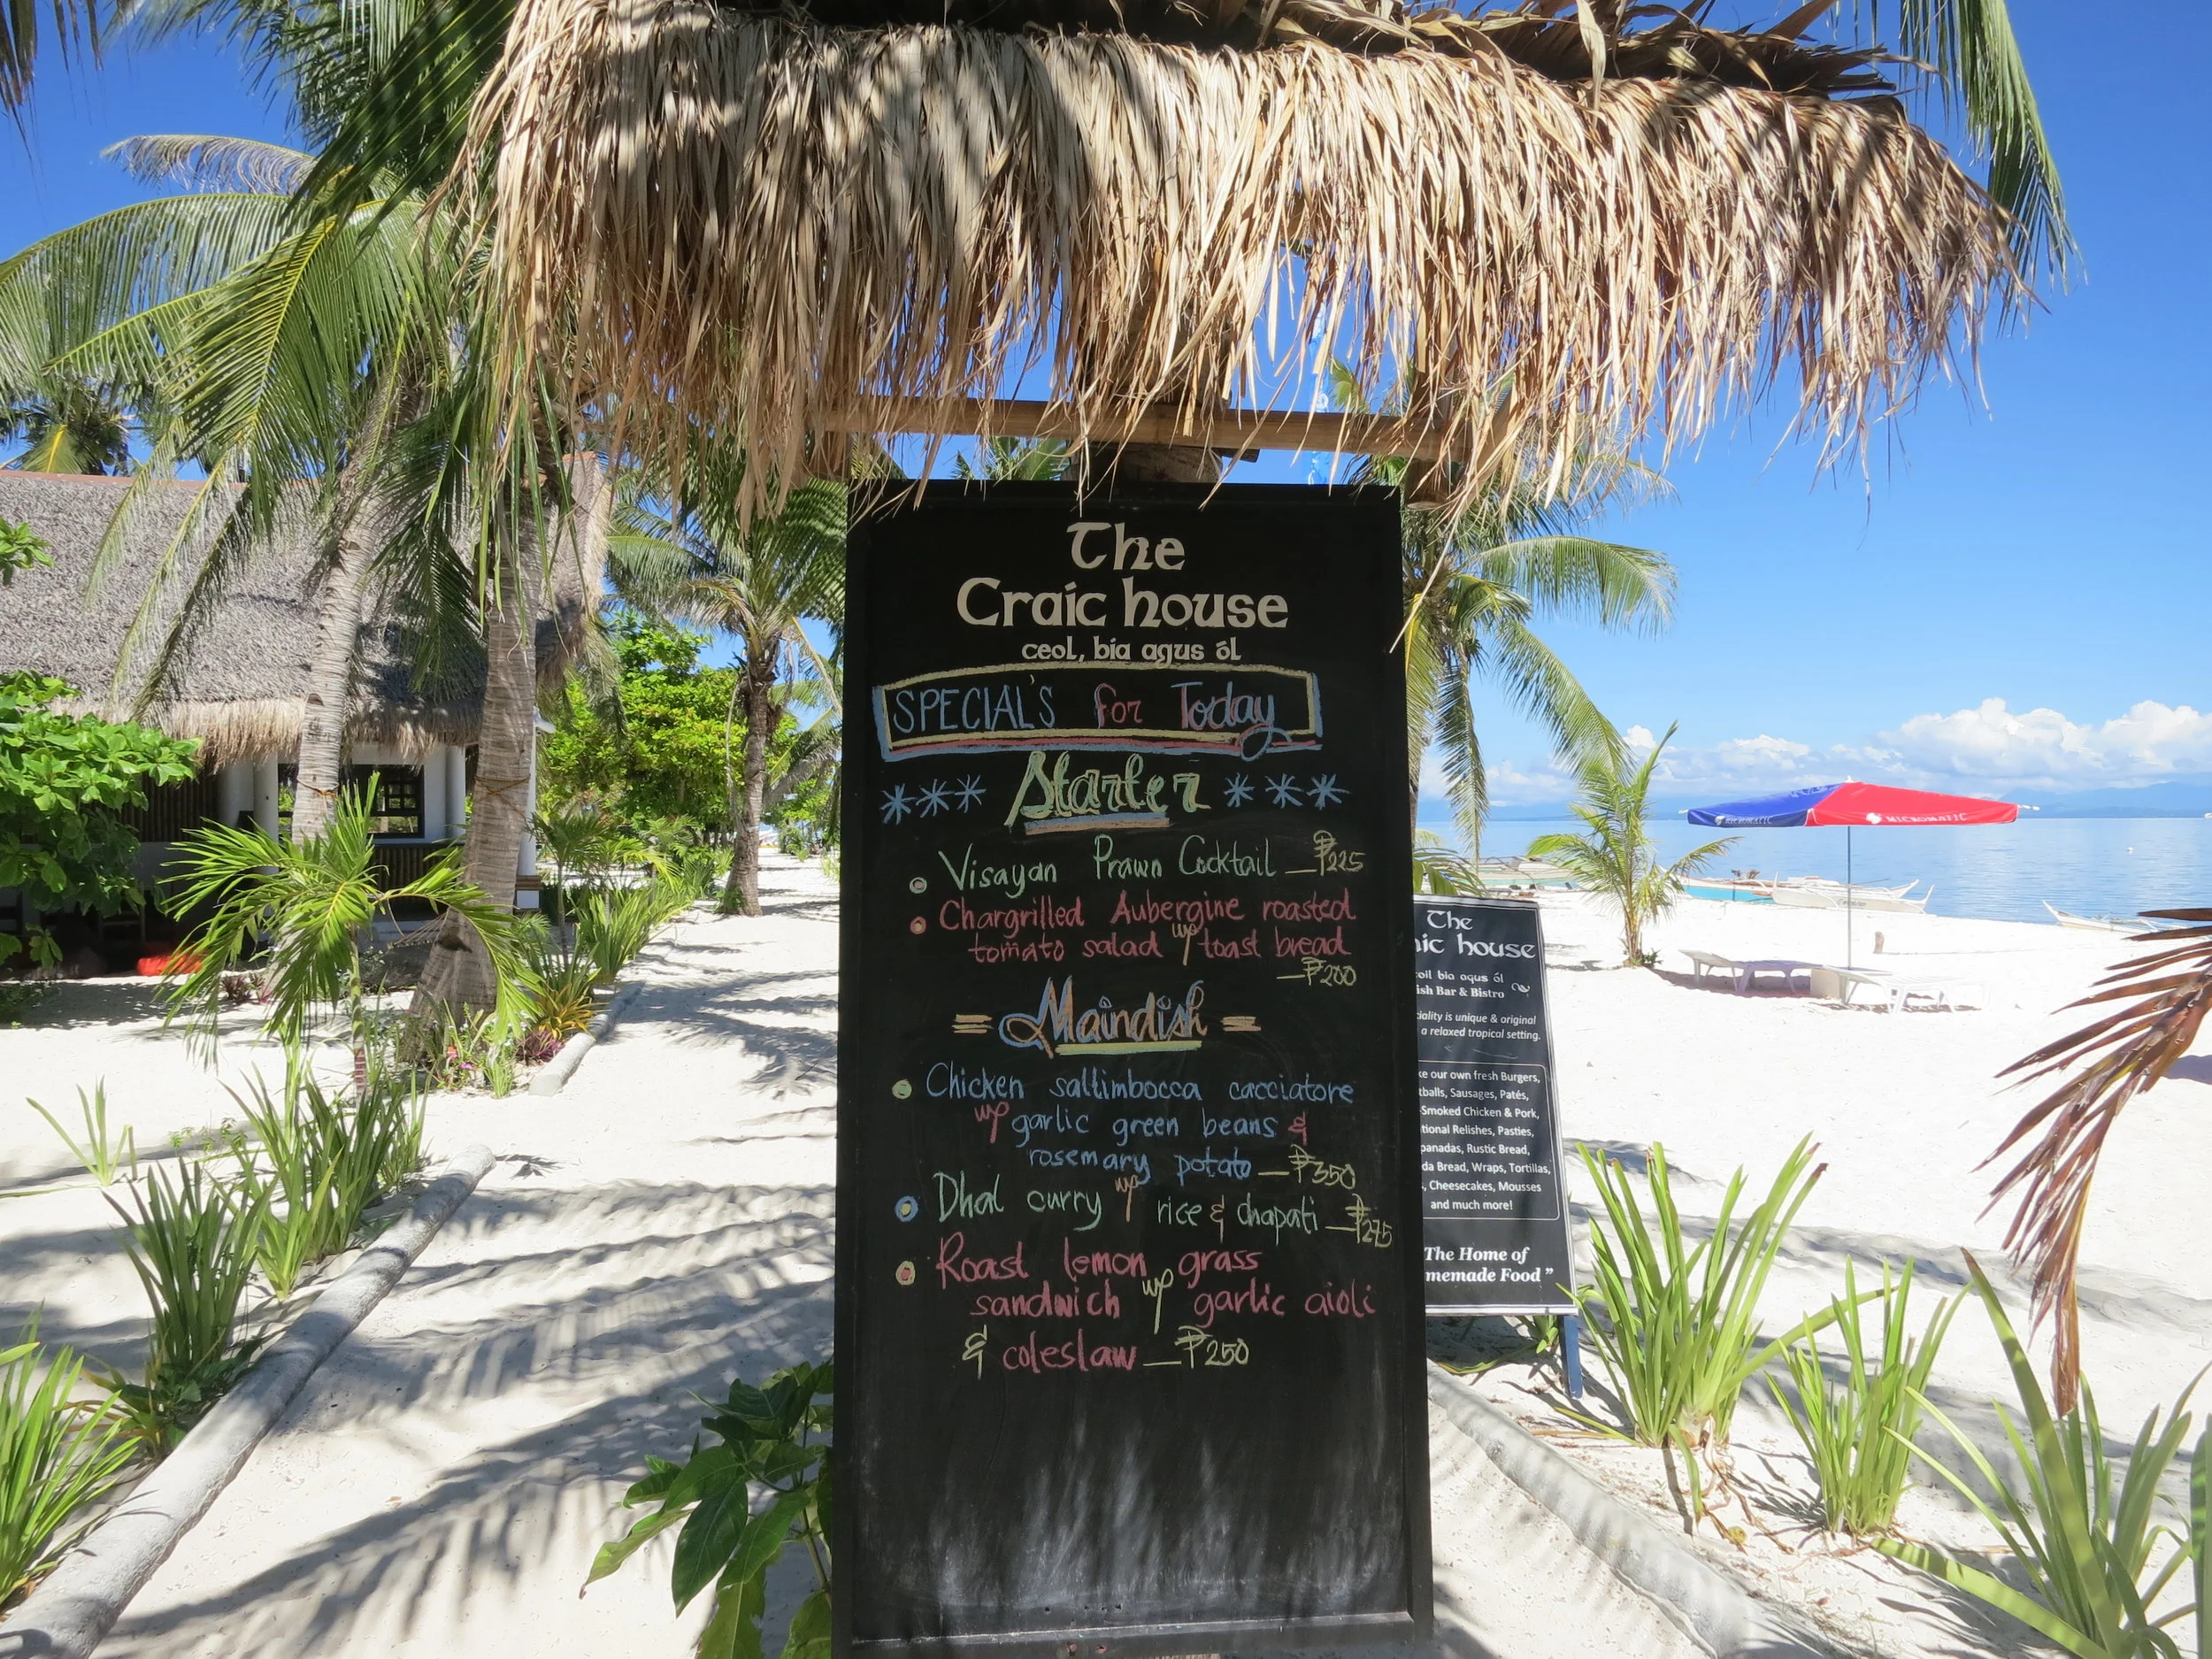 The
Craic house
ceol, bia agus ól
SPECIAL'S for Today
*** Starter ***
Visayan Prawn Cocktail — ₱225
Chargrilled Aubergine roasted
tomato salad w/ toast bread
— ₱200
= Maindish =
Chicken saltimbocca cacciatore
w/ garlic green beans &
rosemary potato — ₱350
Dhal curry w/ rice & chapati — ₱275
Roast lemon grass
sandwich w/ garlic aioli
& coleslaw — ₱250
The
house
bia agus ól
Bar & Bistro
is unique & original
a relaxed tropical setting.
our own fresh Burgers,
Sausages, Patés,
Smoked Chicken & Pork,
Relishes, Pasties,
Rustic Bread,
Bread, Wraps, Tortillas,
Cheesecakes, Mousses
and much more!
The Home of
Food "
MICROMATIC
MICROMATIC